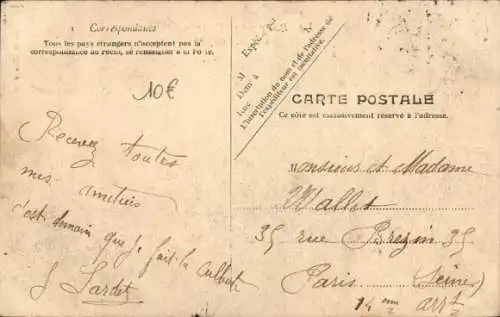 Correspondance
Tous les pays étrangers n'acceptent pas la
correspondance au recto, se renseigner à la Poste.
10€
Recevez toutes
mes amitiés
c'est demain que je fait la culbute
J Sardet
M
Expédié par
Dem' à
Rue
N°
L'inscription du nom et de l'adresse de
l'expéditeur est facultative.
CARTE POSTALE
Ce côté est exclusivement réservé à l'adresse.
Monsieur et Madame
Wallet
35 rue Brezin 35
Paris (Seine)
14eme arrt